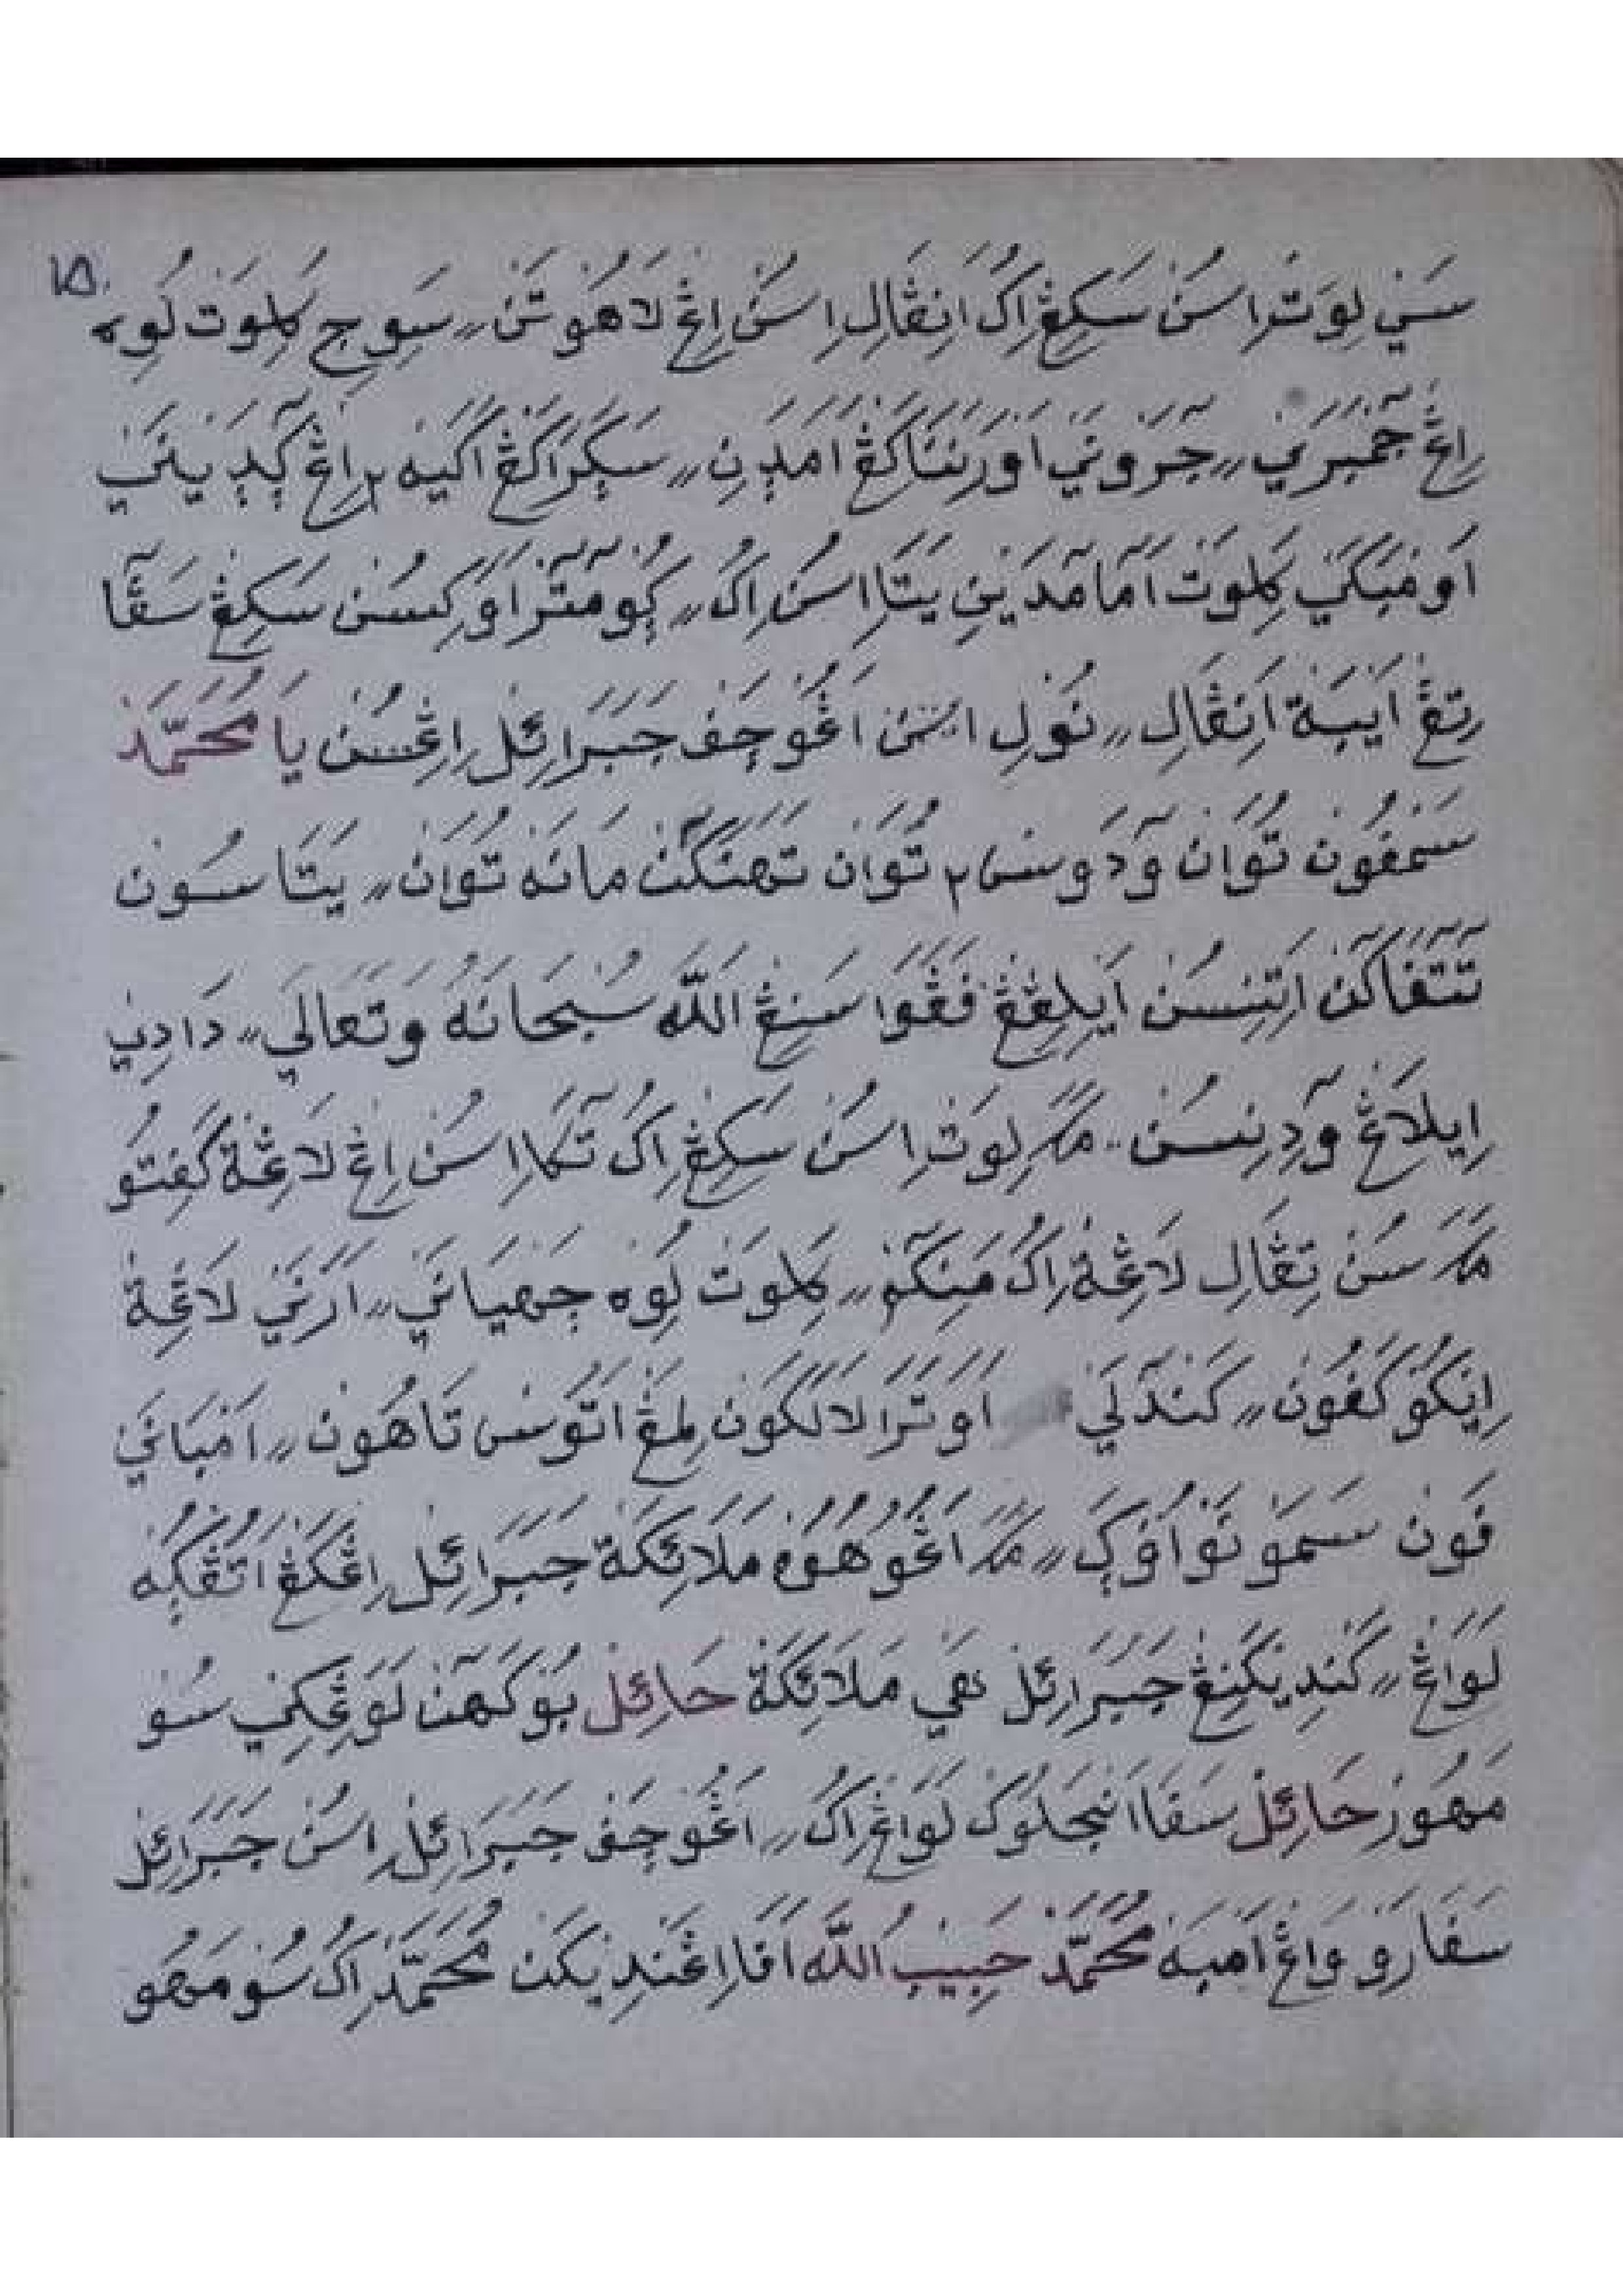 ١٥٠
سَنِي لِوَتْ اِسُنْ سَكِڠْ اِكُ انِڠَالِ اِسُنْ اِڠْ لَاهُوتَنْ ‹‹ سَوِجِ كِلِوَتْ لُوِه
اِڠْ جٓمْبَرَنِي ‹‹ جَرَونَنِي اَوَرْنَنَاكَڠْ اَمَدٓنِ ‹‹ سَكٓرَاكَڠْ اَكَيٓه ٢ اِڠْ كٓدٓيٓنَنِي
اُومْبَكَنِي كِلِوَتْ آمَامَدٓيَنِي يَتَا اِسُنْ اِكُ ‹‹ كٓيُومٓتٓرْ اَوَكِسُنْ سَكِڠْ سَڤٓا
رِتِڠْ اَيٓبَهْ اَنِڠَالِ ‹‹ نُوَلِ اَڠُوچَڤْ جَبَرَائِلْ اِڠِسُنْ يَا مُحَمَّدْ
سَمْڤُونْ تُوَانْ وٓدَوسْ ٢ تُوَانْ تَهَنَكٓنْ مَانَهْ تُوَانْ ‹‹ يَتَا سُونْ
تٓتٓڤَاكٓنْ اَتِنِسُنْ اَيٓلِڠِڠْ ڤَڠُوَاسَنِڠْ اللّٰه سُبْحَانَهُ وَتَعَالَي ‹‹ دَادِي
اِيلَاڠْ وٓدِنِسُنْ ‹‹ مَكَ لِوَتْ اِسُنْ سَكِڠْ اِكُ تٓكَا اِسُنْ اِڠْ لَاڠِةْ كَڤِتُو
مَكَ سُنْ تِڠَالِ لَاڠِةْ اِكُ مَنِكٓمْ ‹‹ كِلِوَتْ لُوِه چَهْيَانَنِي ‹‹ اَرَنَنِي لَاڠِةْ
اِيكُوكَڤُونْ ‹‹ كَنْدٓلَنِي اَوَتَرَا لَالَكُونْ لِمَڠْ اَتُوسْ تَاهُونْ ‹‹ اَمْبَانَنِي
ڤُونْ سَمَوَنَوْ اُوڮٓ ‹‹ مَكَ اَڠُوهُوهْ مَلَائِكَةْ جَبَرَائِلْ اِڠْكَڠْ اَتُڠْڮُه
لَوَاڠْ ‹‹ كَنْدِيكَنِڠْ جَبَرَائِلْ هَيْ مَلَائِكَةْ حَائِلْ بُوكَهٓنْ لَوَڠِكِنِي سُو
مَهُورْ حَائِلْ سَڤَا اَنْجَلُوكْ لَوَاڠْ اِكُ ‹‹ اَڠُوچَڤْ جَبَرَائِلْ اِسُنْ جَبَرَائِلْ
سَڤَا رَوْوَاڠْ اَمْبَهْ مُحَمَّدْ حَبِيْبُ اللّٰه اَڤَا اِڠَنْدِيكَنْ مُحَمَّدْ اِكُ سُومَهُو